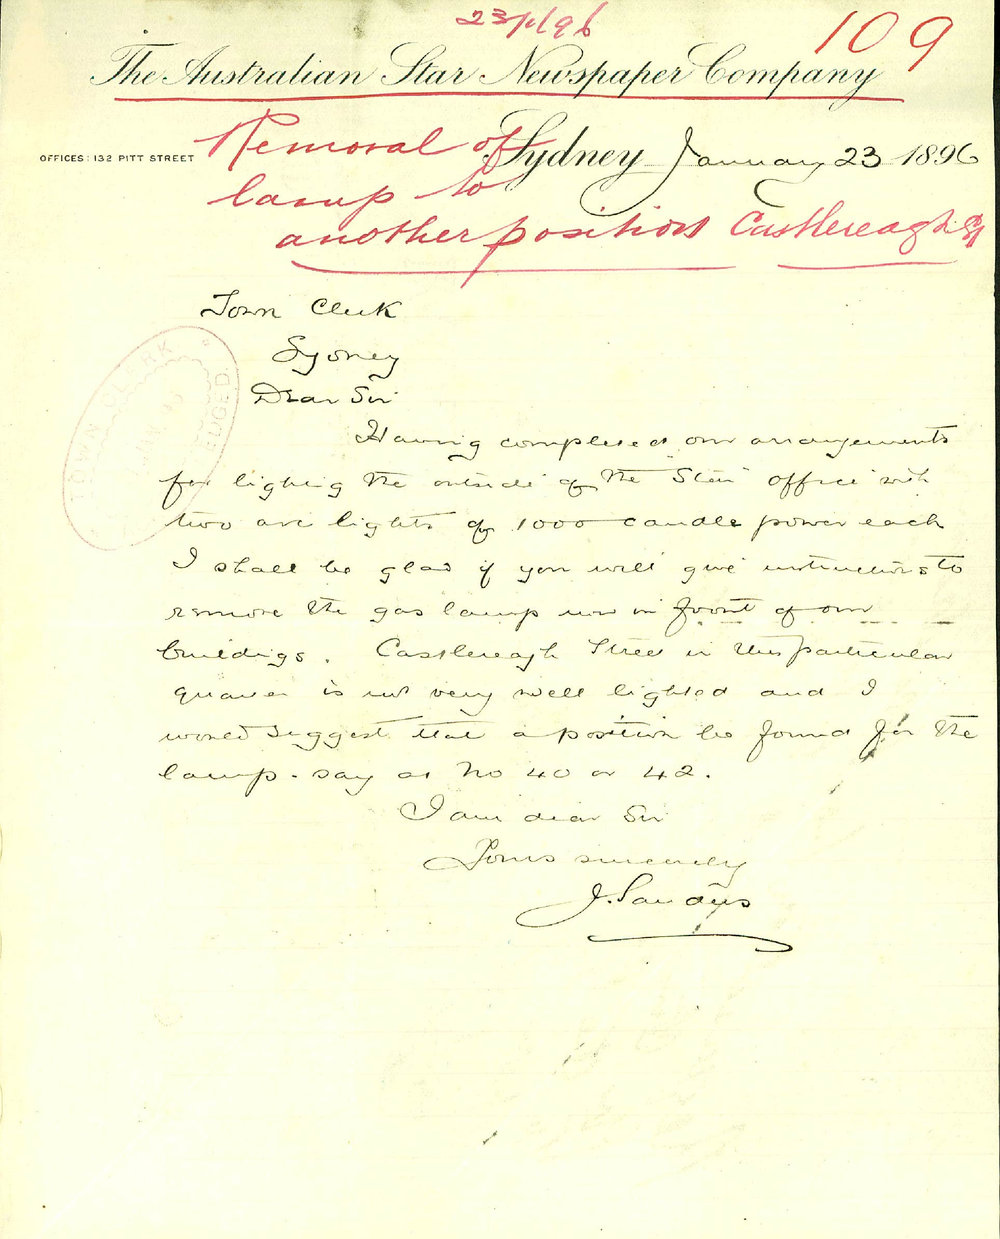 23/1/96
109
The Australian Star Newspaper Company
OFFICES: 132 PITT STREET
Sydney January 23 1896
Removal of
lamp to
another position Castlereagh St
Town Clerk
Sydney
Dear Sir
TOWN CLERK
JAN
Having completed our arrangements
for lighting the outside of the Star office with
two arc lights of 1000 candle power each
I shall be glad if you will give instructions to
remove the gas lamp now in front of our
buildings. Castlereagh Street in this particular
quarter is not very well lighted and I
would suggest that a position be found for the
lamp - say at No 40 or 42.
I am dear Sir
Yours sincerely
J. Sandys